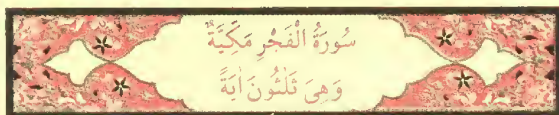 سُورَةُ الْفَجْرِ مَكِّيَّةٌ
وَهِىَ ثَلٰثُونَ اٰيَةً